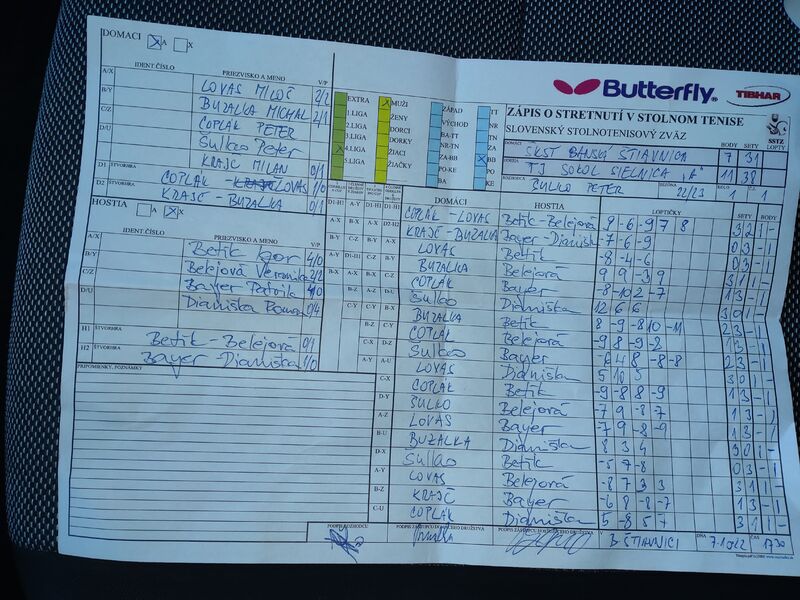 DOMACI A X
Butterfly TIBHAR
ZÁPIS O STRETNUTÍ V STOLNOM TENISE
SLOVENSKÝ STOLNOTENISOVÝ ZVÄZ
SSTZ
LOPTY
BODY SETY
DOMÁCI ŠKST BANSKÁ ŠTIAVNICA 7 31
HOSTIA TJ SOKOL SIELNICA "A" 11 38
ROZHODCA SULKO PETER 22/23 1 1
IDENT.ČÍSLO PRIEZVISKO A MENO V/P
A/X LOVAS MILOČ 2/2
B/Y BUZALKA MICHAL 2/1
C/Z COPLAK PETER
D/U Sulko Peter
KRAJČ MILAN 0/1
D1 ŠTVORHRA COPLAK - LOVAS 1/0
D2 ŠTVORHRA KRAJČ - BUZALKA 0/1
EXTRA
1.LIGA
2.LIGA
3.LIGA
4.LIGA
5.LIGA
MUŽI
ŽENY
DORCI
DORKY
ŽIACI
ŽIAČKY
ZÁPAD
VÝCHOD
BA-TT
NR-TN
ZA-BB
PO-KE
BA
TT
NR
TN
ZA
BB
PO
KE
HOSTIA A X
IDENT.ČÍSLO PRIEZVISKO A MENO V/P
A/X Betik Igor 4/0
B/Y Belejová Veronika 2/2
C/Z Bayer Patorik 4/0
D/U Dianiška Roman 0/4
H1 ŠTVORHRA Betik - Belejová 0/1
H2 ŠTVORHRA Bayer - Dianiška 1/0
PRIPOMIENKY, POZNÁMKY
DOMÁCI HOSTIA LOPTIČKY SETY BODY
COPLAK - LOVAS Betik - Belejová 9 -6 -9 7 8 3 2 1 -
KRAJČ - BUZALKA Bayer - Dianiška -7 -6 -9 0 3 - 1
LOVAS Betik -8 -4 -6 0 3 - 1
BUZALKA Belejová 9 9 -3 9 3 1 1 -
COPLAK Bayer -8 -10 2 -7 1 3 - 1
SULKO Dianiška 12 6 6 3 0 1 -
BUZALKA Betik 8 -9 -8 10 -11 2 3 - 1
COPLAK Belejová -9 8 -9 -2 1 3 - 1
Sulko Bayer -6 4 8 -8 -8 2 3 - 1
LOVAS Dianiška 5 10 5 3 0 1 -
COPLAK Betik -9 -8 8 -9 1 3 - 1
SULKO Belejová -7 9 -8 -7 1 3 - 1
LOVAS Bayer -7 9 -8 -9 1 3 - 1
BUZALKA Dianiška 8 3 4 3 0 1 -
Sulko Betik -5 -7 -8 0 3 - 1
LOVAS Belejová -8 7 3 3 3 1 1 -
KRAJČ Bayer -6 8 -8 -7 1 3 - 1
COPLAK Dianiška 5 -8 5 7 3 1 1 -
PODPIS ROZHODCU PODPIS ZÁSTUPCU DOMÁCEHO DRUŽSTVA PODPIS ZÁSTUPCU HOSŤUJÚCEHO DRUŽSTVA V B. ŠTIAVNICI DŇA 7.10.22 ČAS 17:30